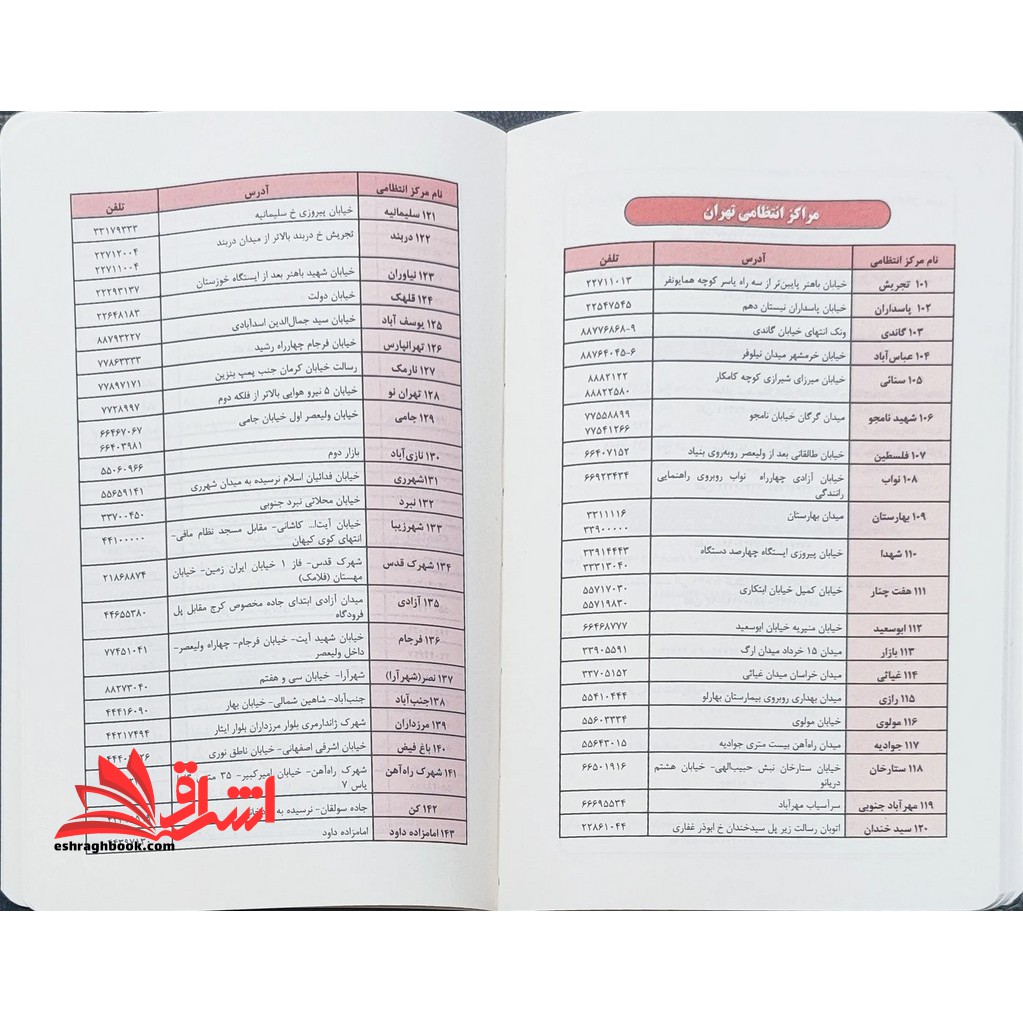 مراکز انتظامی تهران
نام مرکز انتظامی آدرس تلفن
۱۰۱ تجریش خیابان باهنر پایین‌تر از سه راه یاسر کوچه همایونفر ۲۲۷۱۱۰۱۳
۱۰۲ پاسداران خیابان پاسداران نیستان دهم ۲۲۵۴۷۵۴۵
۱۰۳ گاندی ونک انتهای خیابان گاندی ۸۸۷۷۶۸۶۸-۹
۱۰۴ عباس‌آباد خیابان خرمشهر میدان نیلوفر ۸۸۷۶۴۰۴۵-۶
۱۰۵ سنائی خیابان میرزای شیرازی کوچه کامکار ۸۸۸۲۱۲۲
۸۸۸۲۲۵۸۰
۱۰۶ شهید نامجو میدان گرگان خیابان نامجو ۷۷۵۵۸۸۹۹
۷۷۵۴۱۲۶۶
۱۰۷ فلسطین خیابان طالقانی بعد از ولیعصر روبه‌روی بنیاد ۶۶۴۰۷۱۵۲
۱۰۸ نواب خیابان آزادی چهارراه نواب روبروی راهنمایی ۶۶۹۲۳۴۳۴
رانندگی
۱۰۹ بهارستان میدان بهارستان ۳۳۱۱۱۱۶
۳۳۹۰۰۰۰۰
۱۱۰ شهدا خیابان پیروزی ایستگاه چهارصد دستگاه ۳۳۹۱۴۴۴۳
۳۳۳۱۳۰۴۰
۱۱۱ هفت چنار خیابان کمیل خیابان ابتکاری ۵۵۷۱۷۰۳۰
۵۵۷۱۹۸۳۰
۱۱۲ ابوسعید خیابان منیریه خیابان ابوسعید ۶۶۴۶۸۷۷۷
۱۱۳ بازار میدان ۱۵ خرداد میدان ارگ ۳۳۹۰۵۵۹۱
۱۱۴ غیاثی میدان خراسان میدان غیاثی ۳۳۷۰۵۱۵۲
۱۱۵ رازی میدان بهداری روبروی بیمارستان بهارلو ۵۵۴۱۰۴۴۴
۱۱۶ مولوی خیابان مولوی ۵۵۶۰۳۳۳۴
۱۱۷ جوادیه میدان راه‌آهن بیست متری جوادیه ۵۵۶۴۳۰۱۵
۱۱۸ ستارخان خیابان ستارخان نبش حبیب‌الهی- خیابان هشتم ۶۶۵۰۱۹۱۶
دریانو
۱۱۹ مهرآباد جنوبی سرآسیاب مهرآباد ۶۶۶۹۵۵۳۴
۱۲۰ سید خندان اتوبان رسالت زیر پل سیدخندان خ ابوذر غفاری ۲۲۸۶۱۰۴۴
نام مرکز انتظامی آدرس تلفن
۱۲۱ سلیمانیه خیابان پیروزی خ سلیمانیه ۳۳۱۷۹۳۳۳
۱۲۲ دربند تجریش خ دربند بالاتر از میدان دربند ۲۲۷۱۲۰۰۴
۲۲۷۱۱۰۰۴
۱۲۳ نیاوران خیابان شهید باهنر بعد از ایستگاه خوزستان ۲۲۲۹۳۱۳۷
۱۲۴ قلهک خیابان دولت ۲۲۶۴۸۱۸۳
۱۲۵ یوسف آباد خیابان سید جمال‌الدین اسدآبادی ۸۸۷۹۳۲۲۷
۱۲۶ تهرانپارس خیابان فرجام چهارراه رشید ۷۷۸۶۳۳۳۳
۱۲۷ نارمک رسالت خیابان کرمان جنب پمپ بنزین ۷۷۸۹۷۱۷۱
۱۲۸ تهران نو خیابان ۵ نیرو هوایی بالاتر از فلکه دوم ۷۷۲۸۹۹۷
۱۲۹ جامی خیابان ولیعصر اول خیابان جامی ۶۶۴۶۷۰۶۷
۶۶۴۰۳۹۸۱
۱۳۰ نازی‌آباد بازار دوم ۵۵۰۶۰۹۶۶
۱۳۱شهرری خیابان فدائیان اسلام نرسیده به میدان شهرری ۵۵۶۵۹۱۴۱
۱۳۲ نبرد خیابان محلاتی نبرد جنوبی ۳۳۷۰۰۴۵۰
۱۳۳ شهرزیبا خیابان آیت‌ا... کاشانی- مقابل مسجد نظام مافی- ۴۴۱۰۰۰۰۰
انتهای کوی کیهان
۱۳۴ شهرک قدس شهرک قدس- فاز ۱ خیابان ایران زمین- خیابان ۲۱۸۶۸۸۷۴
مهستان (فلامک)
۱۳۵ آزادی میدان آزادی ابتدای جاده مخصوص کرج مقابل پل ۴۴۶۵۵۳۸۰
فرودگاه
۱۳۶ فرجام خیابان شهید آیت- خیابان فرجام- چهاراه ولیعصر- ۷۷۴۵۱۰۴۱
داخل ولیعصر
۱۳۷ نصر(شهرآرا) شهرآرا- خیابان سی و هفتم ۸۸۲۷۳۰۴۰
۱۳۸جنب‌آباد جنب‌آباد- شاهین شمالی- خیابان بهار ۴۴۴۱۶۰۹۰
۱۳۹ مرزداران شهرک ژاندارمری بلوار مرزداران بلوار ایثار ۴۴۲۱۷۴۹۴
۱۴۰ باغ فیض خیابان اشرفی اصفهانی- خیابان ناطق نوری
۱۴۱ شهرک راه‌آهن شهرک راه‌آهن- خیابان امیرکبیر- ۳۵
یاس ۷
۱۴۲ کن جاده سولقان- نرسیده به
۱۴۳ امامزاده داود امامزاده داود
اشراق
eshraghbook.com